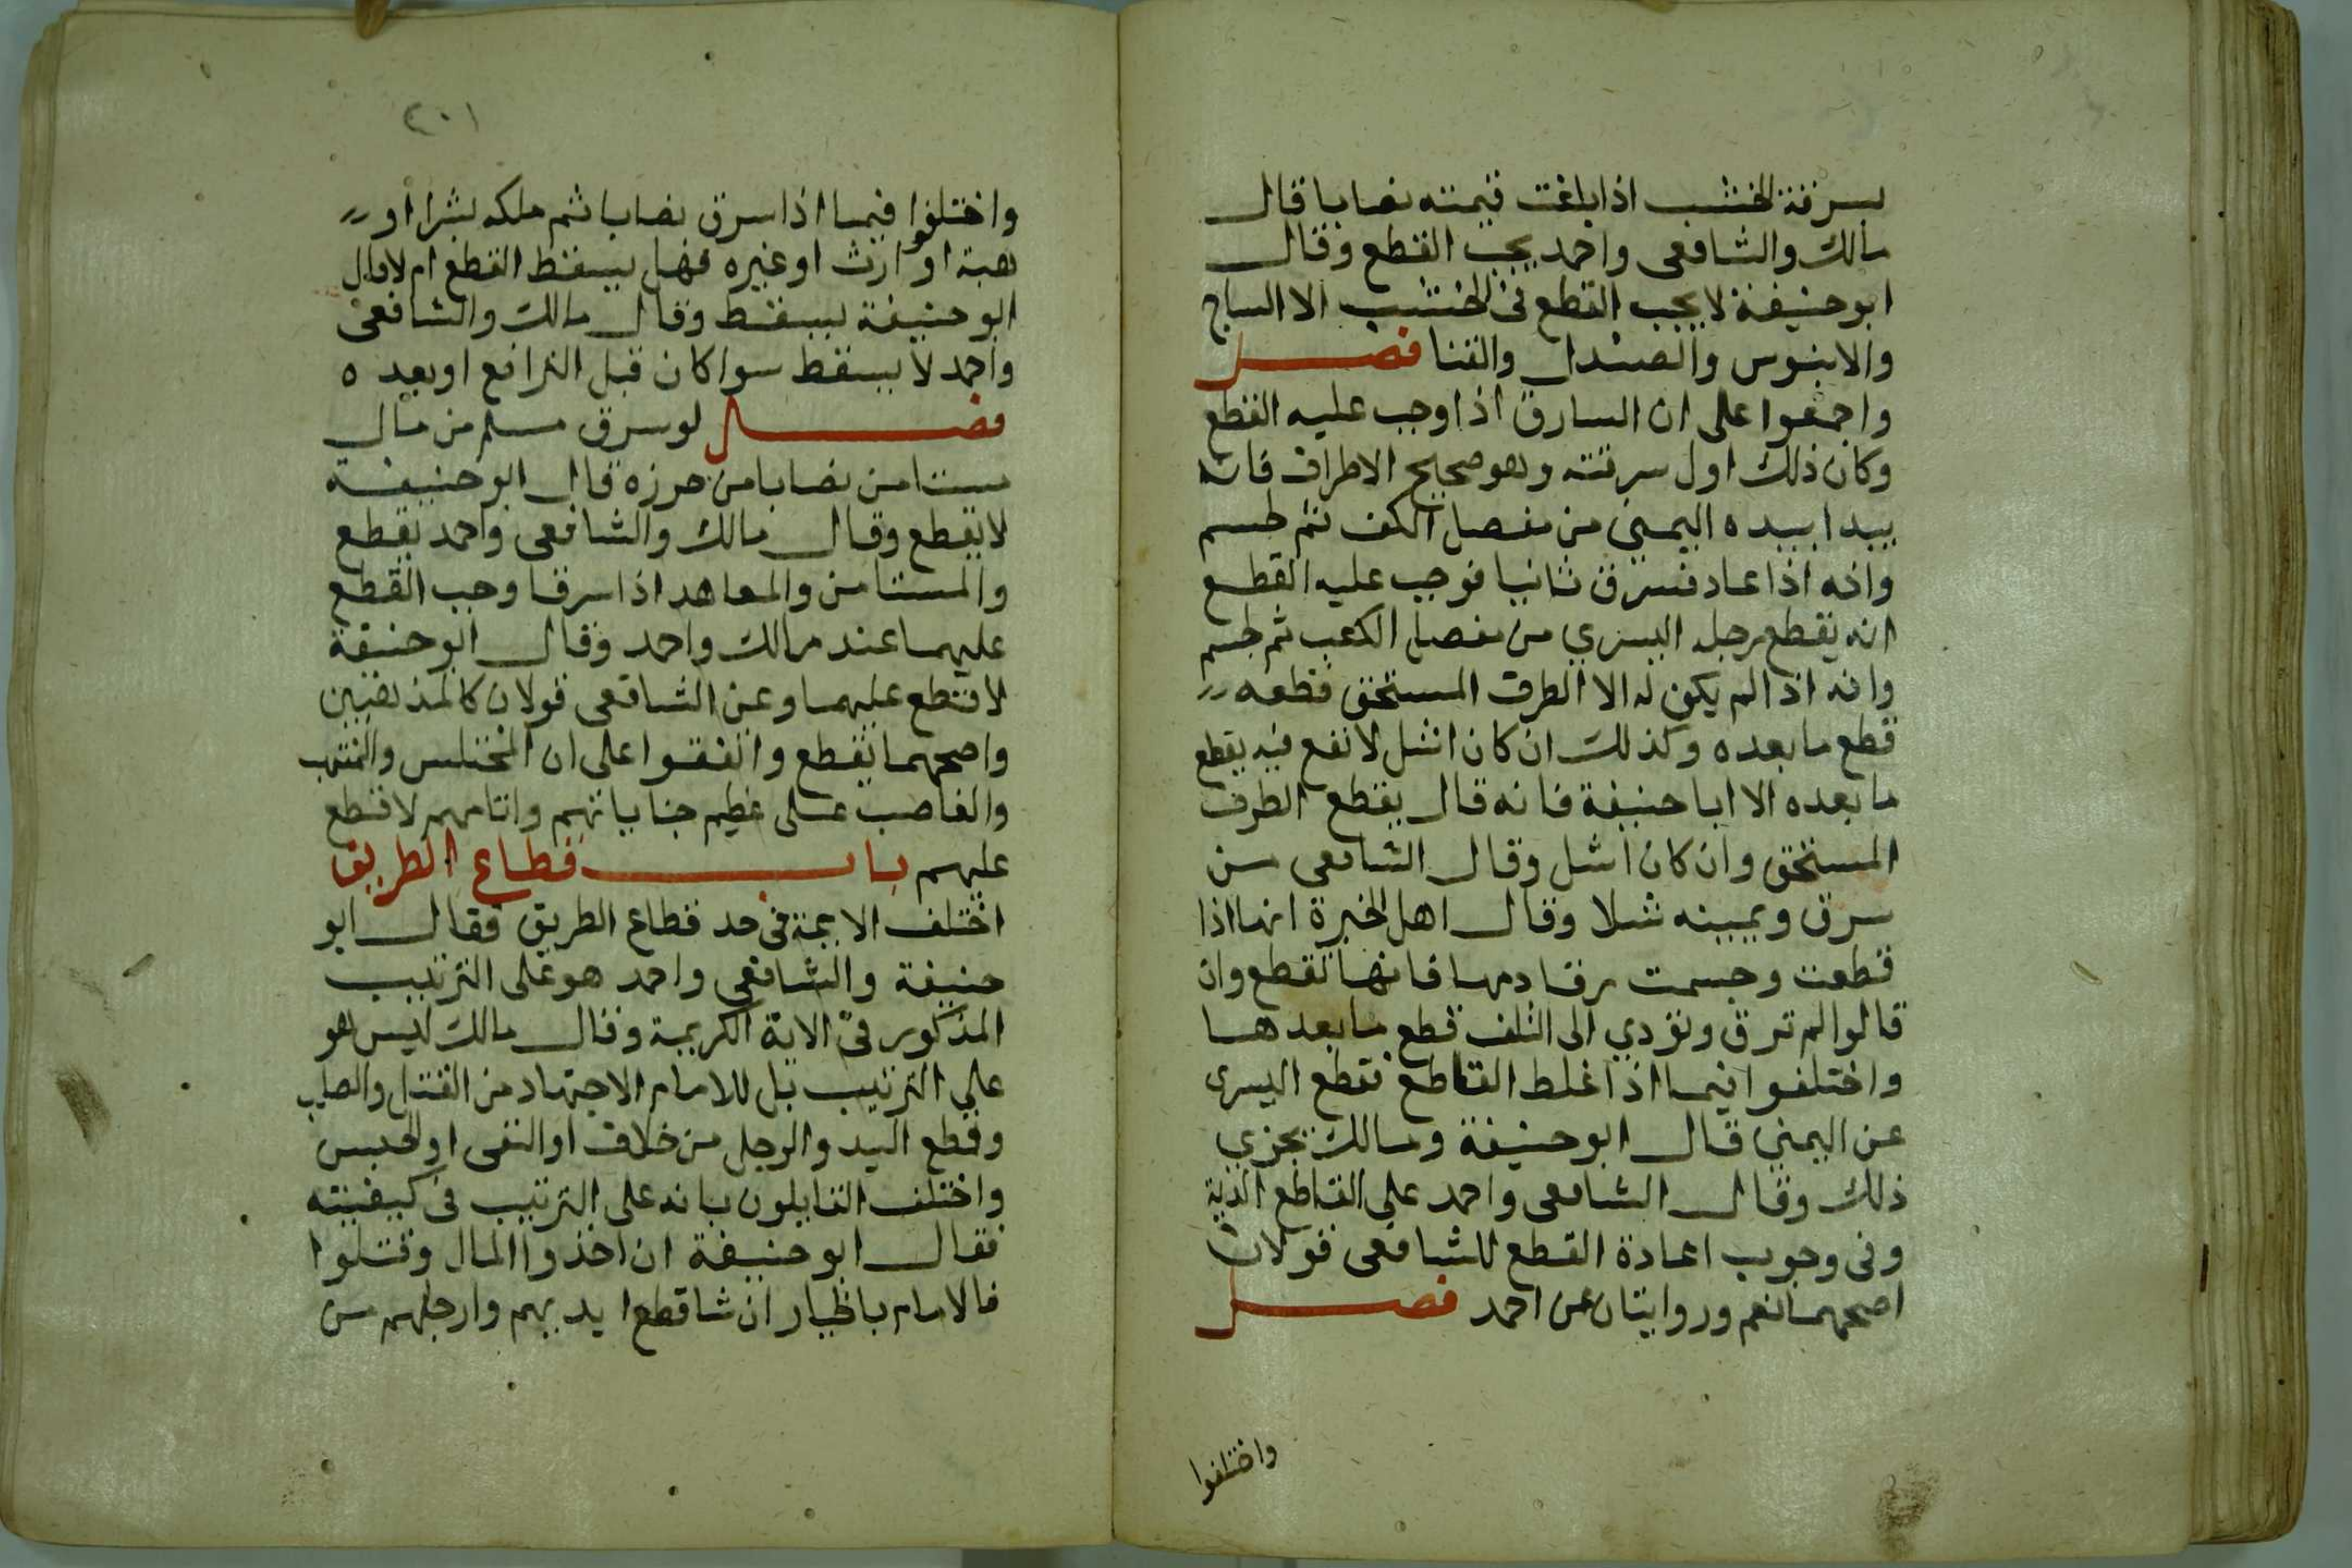 بسرقة الخشب اذا بلغت قيمته نصابا قال
مالك والشافعى واحمد يجب القطع وقال
ابو حنيفة لا يجب القطع فى الخشب الا الساج
والابنوس والصندل والقنا فصل
واجمعوا على ان السارق اذا وجب عليه القطع
وكان ذلك اول سرقته وهو صحيح الاطراف فانه
يبدا بيده اليمنى من مفصل الكف ثم تحسم
وانه اذا عاد فسرق ثانيا فوجب عليه القطع
انه يقطع رجله اليسري من مفصل الكعب ثم تحسم
وانه اذا لم يكن له الا الطرف المستحق قطعه
قطع ما بعده وكذلك ان كان اشل لا نفع فيه يقطع
ما بعده الا ابا حنيفة فانه قال يقطع الطرف
المستحق وان كان اشل وقال الشافعى من
سرق ويمينه شلا وقال اهل الخبرة انها اذا
قطعت وحسمت رقا دمها فانها تقطع وان
قالوا لم ترق وتؤدي الى التلف قطع ما بعدها
واختلفوا فيما اذا غلط القاطع فقطع اليسرى
عن اليمنى قال ابو حنيفة ومالك يجزي
ذلك وقال الشافعى واحمد على القاطع الدية
وفى وجوب اعادة القطع للشافعى قولان
اصحهما نعم وروايتان عن احمد فصل
واختلفوا
٢٠١
واختلفوا فيما اذا سرق نصابا ثم ملكه بشرا او
هبة او ارث او غيره فهل يسقط القطع ام لا قال
ابو حنيفة يسقط وقال مالك والشافعى
واحمد لا يسقط سوا كان قبل الترافع او بعده
فصل لو سرق مسلم من مال
مستامن نصابا من حرزه قال ابو حنيفة
لا يقطع وقال مالك والشافعى واحمد يقطع
والمستامن والمعاهد اذا سرقا وجب القطع
عليهما عند مالك واحمد وقال ابو حنيفة
لا قطع عليهما وعن الشافعى قولان كالمذهبين
واصحهما يقطع واتفقوا على ان المختلس والمنتهب
والغاصب على عظيم جناياتهم واثامهم لا قطع
عليهم باب قطاع الطريق
اختلف الايمة فى حد قطاع الطريق فقال ابو
حنيفة والشافعي واحمد هو على الترتيب
المذكور فى الاية الكريمة وقال مالك ليس هو
علي الترتيب بل للامام الاجتهاد من القتل والصلب
وقطع اليد والرجل من خلاف او النفى او الحبس
واختلف القايلون بانه على الترتيب فى كيفيته
فقال ابو حنيفة ان اخذوا المال وقتلوا
فالامام بالخيار ان شا قطع ايديهم وارجلهم من